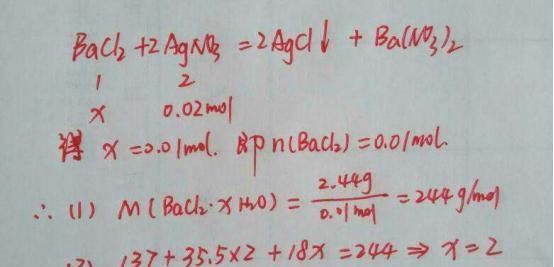 BaCl₂ + 2AgNO₃ = 2AgCl↓ + Ba(NO₃)₂
1 2
x 0.02mol
得 x = 0.01mol. 即 n(BaCl₂) = 0.01mol.
∴ (1) M(BaCl₂·xH₂O) = 2.44g / 0.01mol = 244g/mol
(2) 137 + 35.5×2 + 18x = 244 ⇒ x = 2